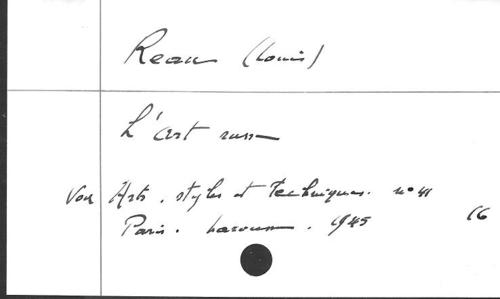 Reau (Louis)
L'art russe
Voir Arts. styles et techniques. n° 41
Paris. Larousse. 1945 16